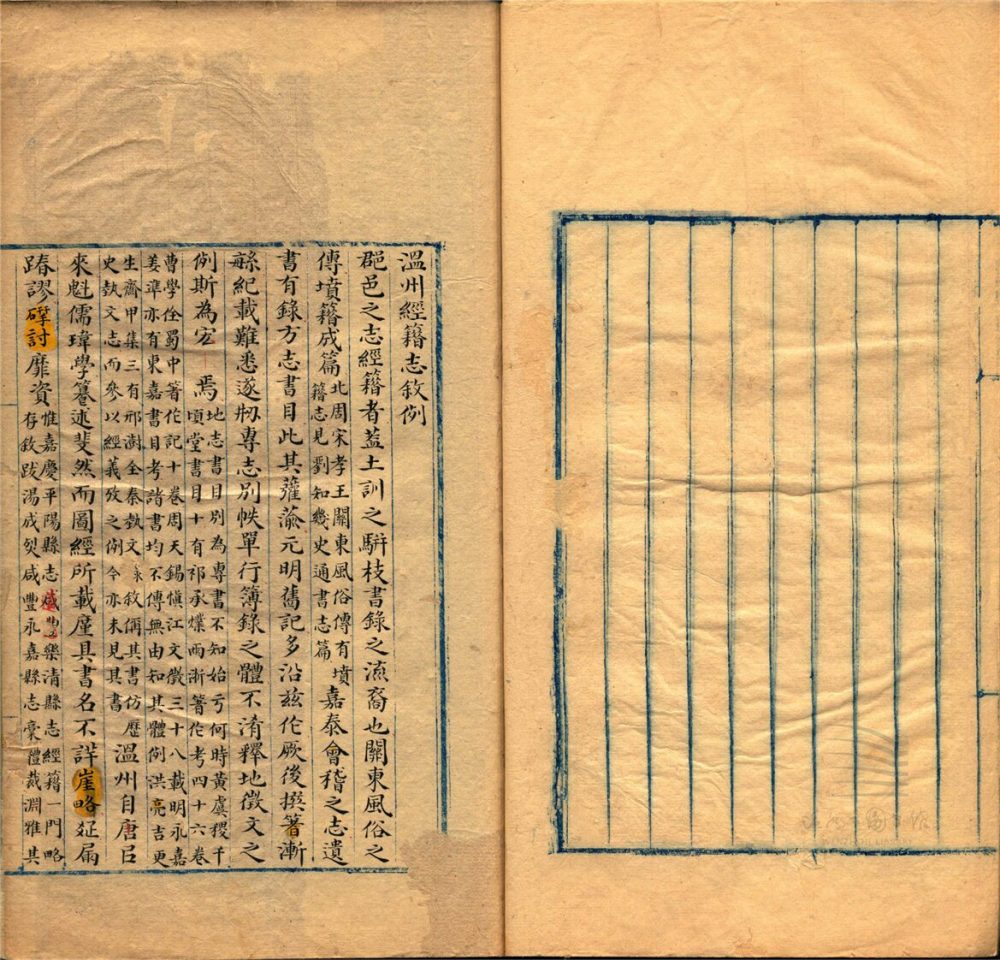 溫州經籍志敘例
郡邑之志經籍者蓋土訓之駢枝書錄之流裔也關東風俗之
傳墳籍成篇
北周宋孝王關東風俗傳有墳
籍志見劉知幾史通書志篇
嘉泰會稽之志遺
書有錄方志書目此其虇蕍元明舊記多沿茲作厥後撰箸漸
緐紀載難悉遂刱專志別帙單行簿錄之體不淆釋地徵文之
例斯為宏焉
地志書目別為專書不知始亏何時黃虞稷千
頃堂書目十有祁承㸁兩浙箸作考四十六卷
曹學佺蜀中箸作記十卷周天錫慎江文徵三十八載明永嘉
姜準亦有東嘉書目考諸書均不傳無由知其體例洪亮吉更
生齋甲集三有邢澍全秦埶文錄敘偁其書仿歷
史埶文志而參以經義攷之例今亦未見其書
溫州自唐㠯
來魁儒瑋學篹述斐然而圖經所載廑具書名不詳崖略延屚
踳謬討靡資
惟嘉慶平陽縣志咸豐樂清縣志經籍一門略
存敘跋湯成烈咸豐永嘉縣志稾體裁淵雅其